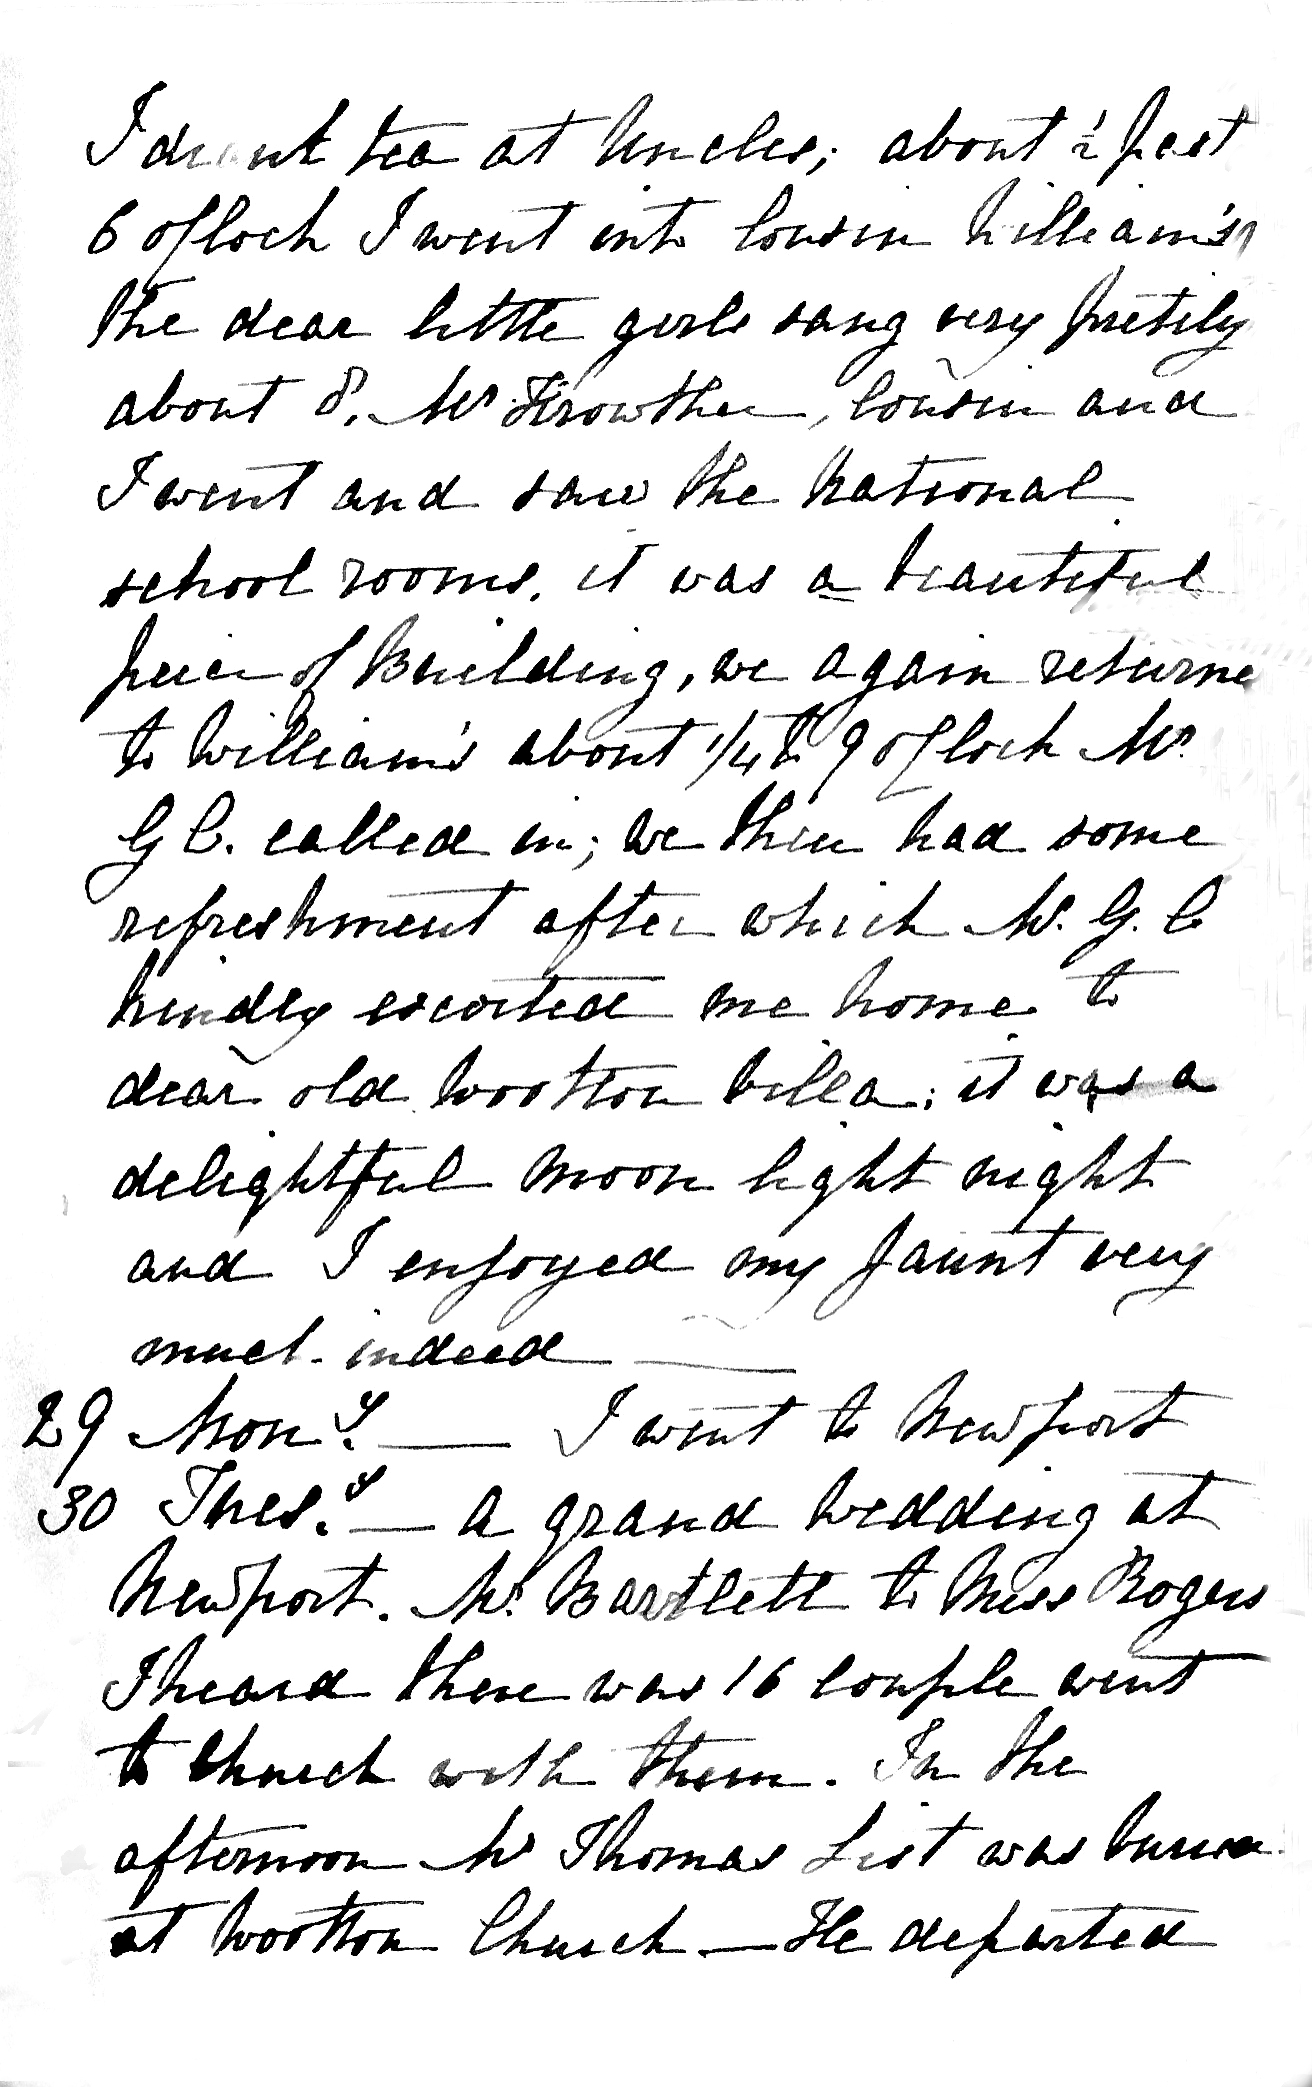 I drank tea at Uncles; about ½ past
6 o'Clock I went into Cousin William's,
the dear little girls sang very prettily
about 8. Mr Crowther, Cousin and
I went and saw the National
school rooms. it was a beautiful
peice of Building, we again returned
to William's about 1/4 to 9 o'Clock Mr.
G C. called in; we then had some
refreshment after which Mr. G. C
kindly escorted me home to
dear old Wootton Villa; it was a
delightful moon light night
and I enjoyed my jaunt very
much indeed —
29 Mon.y — I went to Newport
30 Tues.y — A grand wedding at
Newport. Mr. Bartlett to Miss Rogers
I heard there was 16 couple went
to Church with them. In the
afternoon Mr Thomas List was buried
at Wootton Church — He departed